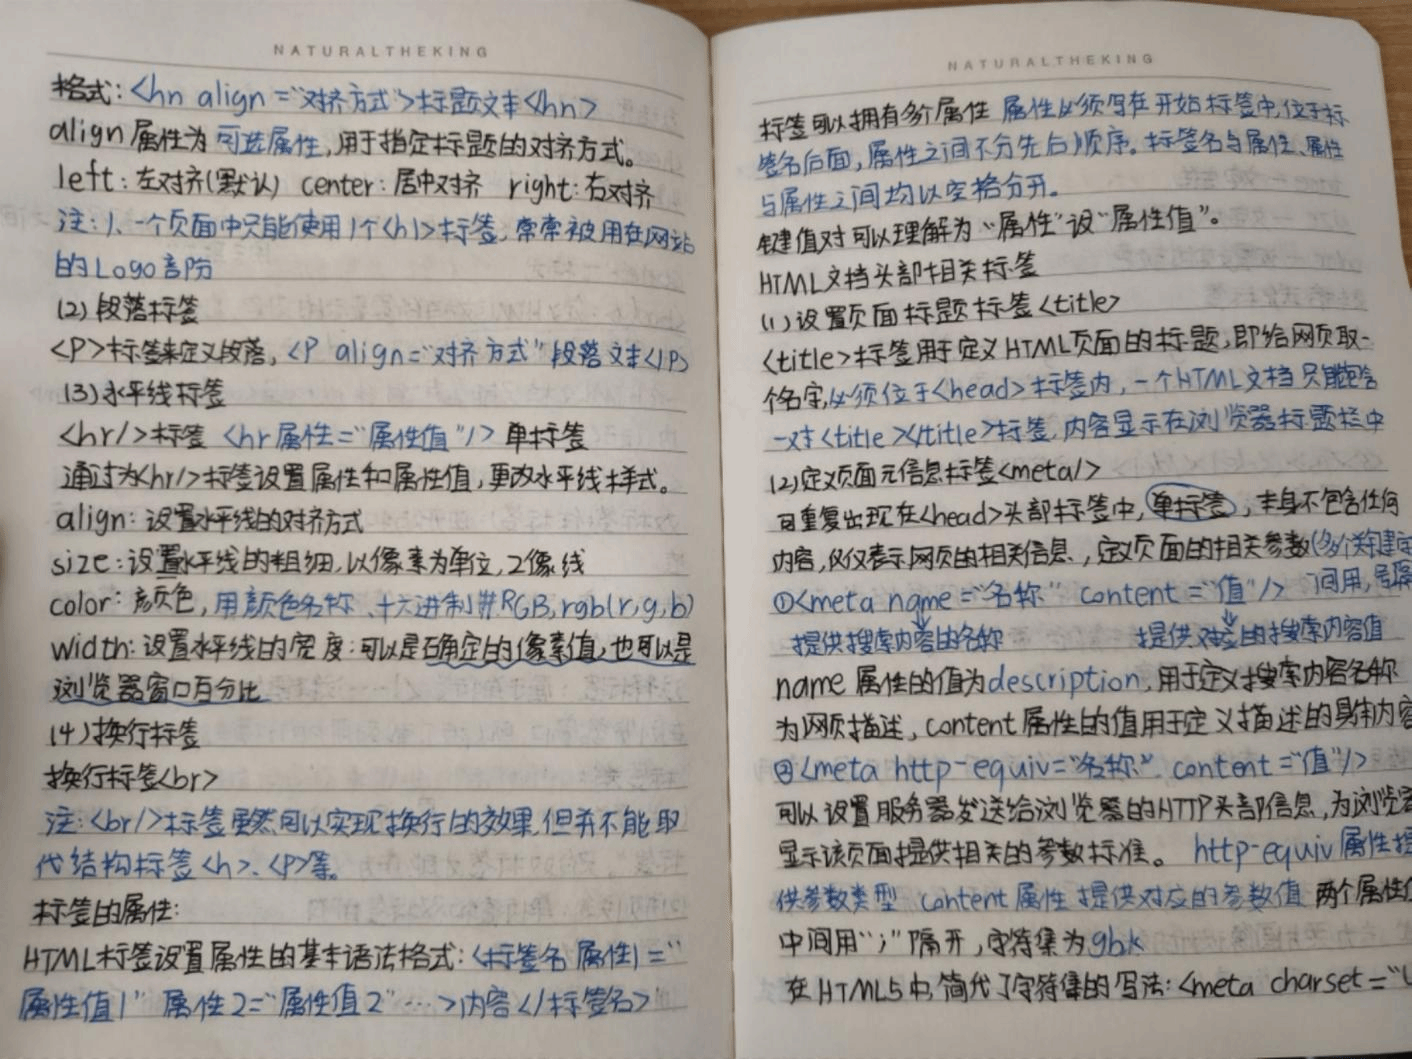 NATURALTHEKING
格式:<hn align="对齐方式">标题文本<hn>
align属性为可选属性,用于指定标题的对齐方式。
left:左对齐(默认) center:居中对齐 right:右对齐
注:1、一个页面中只能使用1个<h1>标签,常常被用在网站
的Logo部份
(2)段落标签
<P>标签来定义段落,<P align="对齐方式"段落文本</P>
(3)水平线标签
<hr/>标签 <hr 属性="属性值"/> 单标签
通过为<hr/>标签设置属性和属性值,更改水平线样式。
align:设置水平线的对齐方式
size:设置水平线的粗细,以像素为单位,2像线
color:颜色,用颜色名称、十六进制#RGB,rgb(r,g,b)
width:设置水平线的宽度:可以是确定的像素值,也可以是
浏览器窗口百分比
(4)换行标签
换行标签<br>
注:<br/>标签虽然可以实现换行的效果,但并不能取
代结构标签<h>、<P>等。
标签的属性:
HTML标签设置属性的基本语法格式:<标签名 属性1="
属性值1" 属性2="属性值2"…>内容</标签名>
NATURALTHEKING
标签可以拥有多个属性 属性必须写在开始标签中,位于标
签名后面,属性之间不分先后顺序。标签名与属性、属性
与属性之间均以空格分开。
键值对可以理解为"属性"设"属性值"。
HTML文档头部相关标签
(1)设置页面标题标签<title>
<title>标签用于定义HTML页面的标题,即给网页取一
个名字,必须位于<head>标签内,一个HTML文档只能包含
一对<title></title>标签,内容显示在浏览器标题栏中
(2)定义页面元信息标签<meta/>
可重复出现在<head>头部标签中,单标签,本身不包含任何
内容,仅仅表示网页的相关信息.,定义页面的相关参数(多个关键字
①<meta name="名称" content="值"/> 间用,号隔
提供搜索内容的名称 提供对应的搜索内容值
name属性的值为description,用于定义搜索内容名称
为网页描述,content属性的值用于定义描述的具体内容
②<meta http-equiv="名称". content="值"/>
可以设置服务器发送给浏览器的HTTP头部信息,为浏览器
显示该页面提供相关的参数标准。 http-equiv属性提
供参数类型 content属性提供对应的参数值 两个属性值
中间用";"隔开,字符集为gbk
在HTML5中,简代了字符集的写法:<meta charset="U